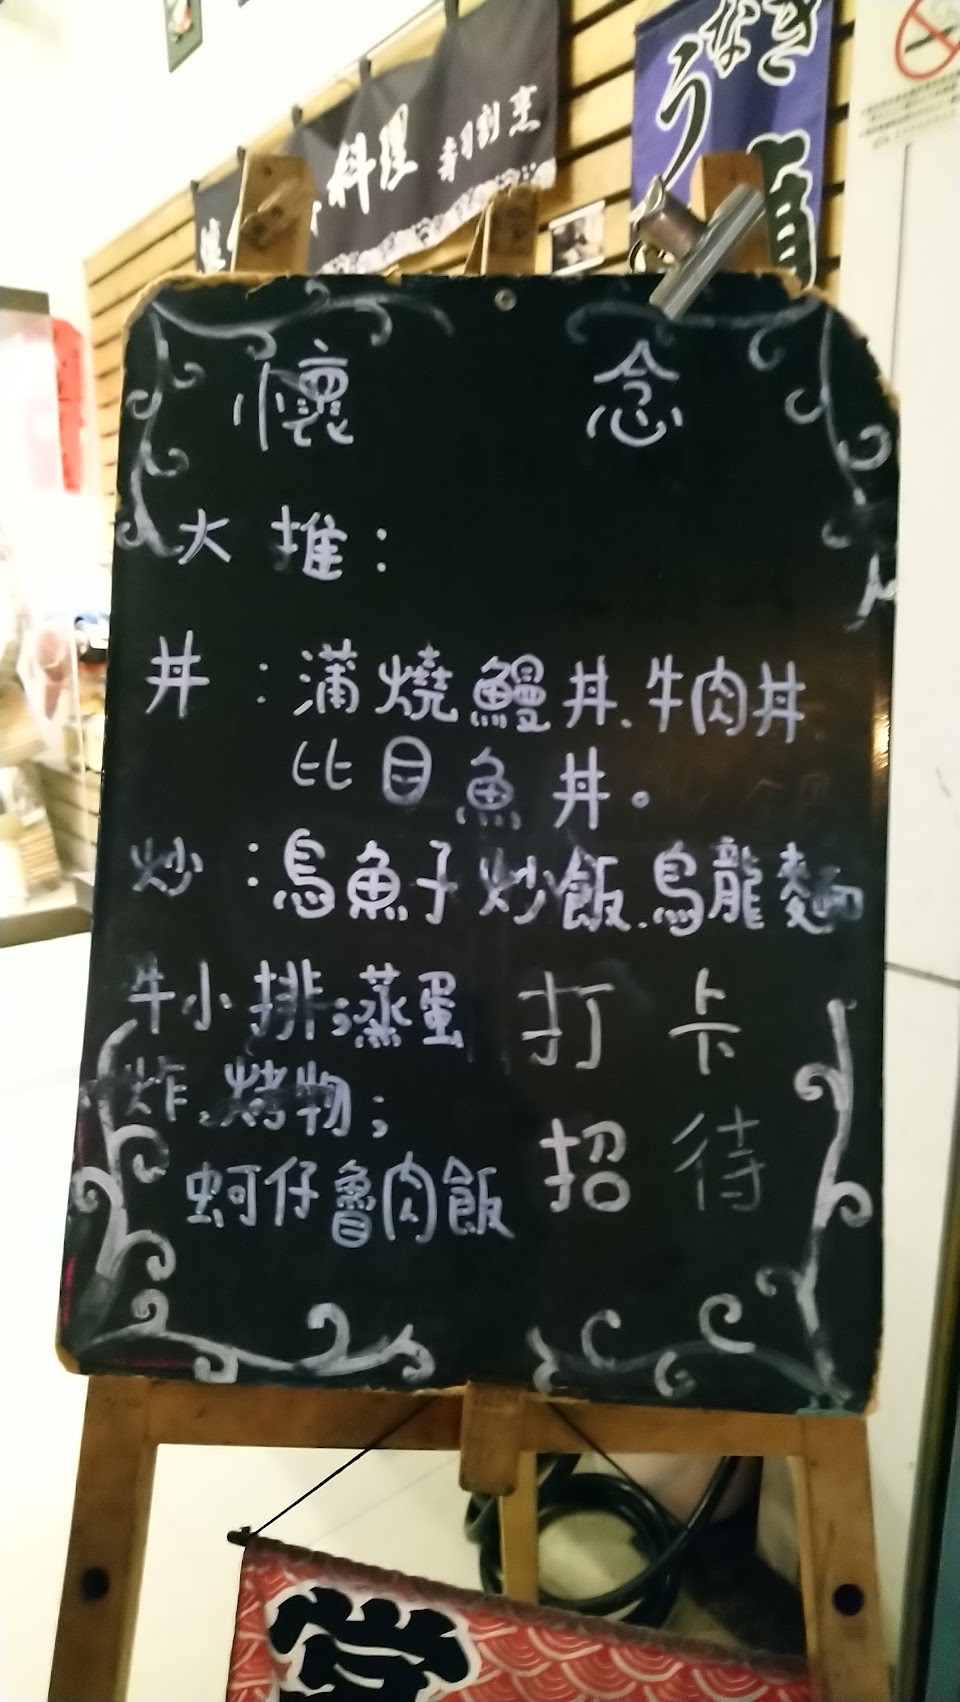 うなぎ
料理 寿司割烹
懷 念
大 推:
丼 :蒲燒鰻丼、牛肉丼
比目魚丼。
炒 :烏魚子炒飯、烏龍麵
牛小排;蒸蛋
炸、烤物;
蚵仔魯肉飯
打 卡
招 待